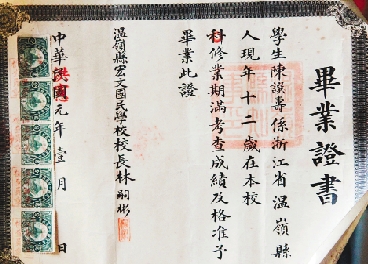 畢業證書
學生陳謨壽係浙江省溫嶺縣
人現年十二歲在本校
修業期滿考查成績及格准予
畢業此證
溫嶺縣宏文國民學校校長林嗣彬
中華洪憲元年壹月 日